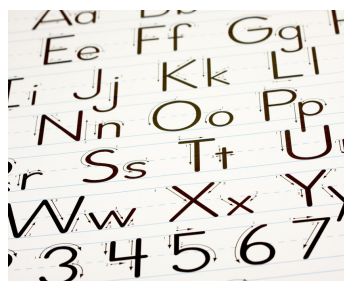 Aa Bb
Ee Ff Gg H
Ii Jj Kk Ll
Nn Oo Pp
Rr Ss Tt U
Ww Xx Yy
3 4 5 6 7